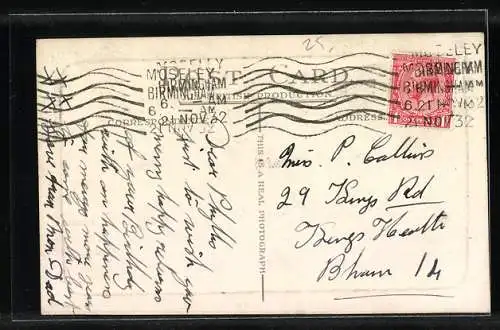 25.
MOSELEY
BIRMINGHAM
6. AM
21 NOV 32
MOSELEY
BIRMINGHAM
6. 21 AM
21 NOV 32
POST CARD
BRITISH PRODUCTION
CORRESPONDENCE
ADDRESS
THIS IS A REAL PHOTOGRAPH
Dear Phyllis
just to wish you
many happy returns
of your Birthday
with on happiness
your many more year
to come with love
from Mrs Dad
x x x
Miss P. Collins
29 Kings Rd
Kings Heath
Bham 14